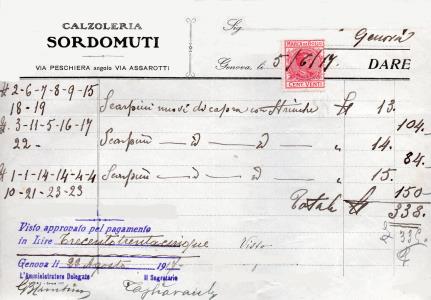 CALZOLERIA
SORDOMUTI
VIA PESCHIERA angolo VIA ASSAROTTI
Sig.
Genova
Genova, li 5/6/17.
DARE
MARCA DA BOLLO
CENT. VENTI
# 2-6-7-8-9-15
18-19
Scarpini nuovi di capra con Stringhe
13.
104.
# 3-11-5-16-17
22-
Scarpini — D — D
" 14.
84.
# 1-1-14-14-4-4
10-21-23-23
Scarpini — D — D
" 15.
150
Totale
338.
335
Visto approvato pel pagamento
in Lire Trecentotrentacinque
Visto
Genova li 22 Agosto 1917
L'Amministratore Delegato
Il Segretario